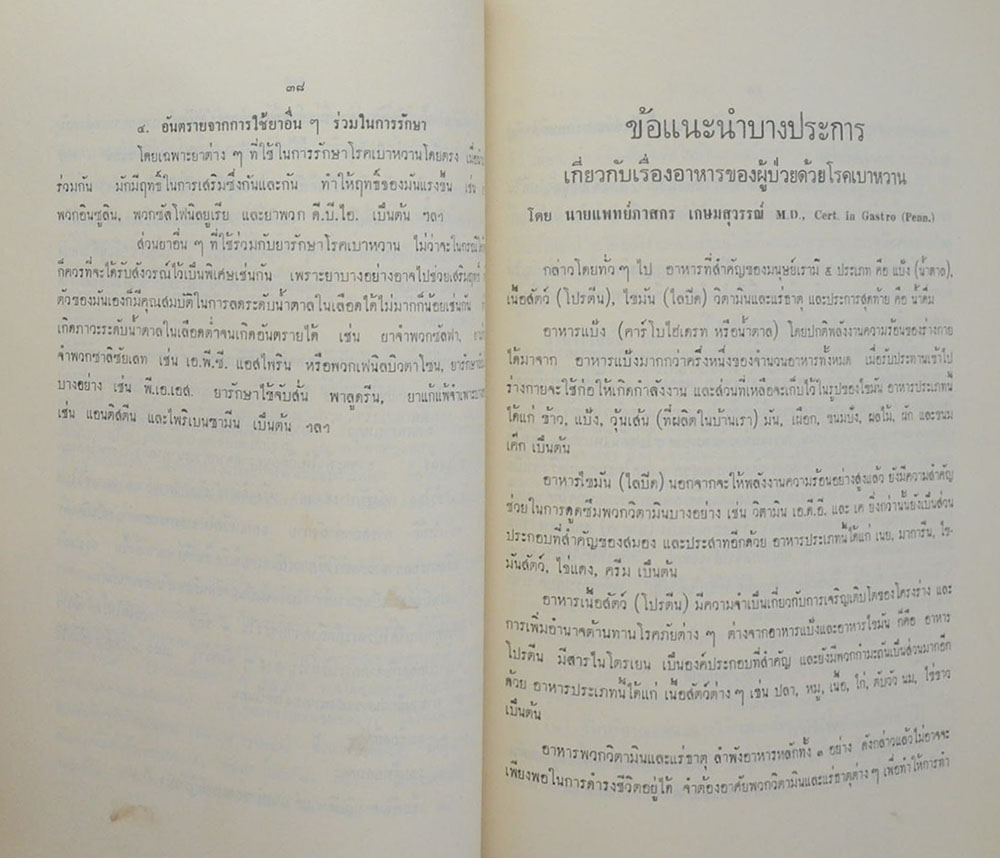 ๓๘
๔. อันตรายจากการใช้ยาอื่น ๆ ร่วมในการรักษา
โดยเฉพาะยาต่าง ๆ ที่ใช้ในการรักษาโรคเบาหวานโดยตรง
ร่วมกัน มักมีฤทธิ์ในการเสริมซึ่งกันและกัน ทำให้ฤทธิ์ของมันแรงขึ้น เช่น
พวกอินซูลิน, พวกซัลโฟนิลยูเรีย และยาพวก ดี.บี.ไอ. เป็นต้น ฯลฯ
ส่วนยาอื่น ๆ ที่ใช้ร่วมกับยารักษาโรคเบาหวาน ไม่ว่าจะในกรณีใด
ก็ควรที่จะได้รับสังวรณ์ไว้เป็นพิเศษเช่นกัน เพราะยาบางอย่างอาจไปช่วยเสริมฤทธิ์
ตัวของมันเองก็มีคุณสมบัติในการลดระดับน้ำตาลในเลือดได้ไม่มากก็น้อยเช่นกัน
เกิดภาวะระดับน้ำตาลในเลือดต่ำจนเกิดอันตรายได้ เช่น ยาจำพวกซัลฟา,
จำพวกซาลิซัยเลท เช่น เอ.พี.ซี. แอสไพริน หรือพวกเฟนิลบิวตาโซน,
บางอย่าง เช่น พี.เอ.เอส. ยารักษาไข้จับสั่น พาลูดรีน, ยาแก้แพ้จำเพาะ
เช่น แอนติสตีน และไพริเบนซามีน เป็นต้น ฯลฯ
ข้อแนะนำบางประการ
เกี่ยวกับเรื่องอาหารของผู้ป่วยด้วยโรคเบาหวาน
โดย นายแพทย์ภาสกร เกษมสุวรรณ์ M.D., Cert. in Gastro (Penn.)
กล่าวโดยทั่วๆ ไป อาหารที่สำคัญของมนุษย์เรามี ๕ ประเภท คือ แป้ง (น้ำตาล),
เนื้อสัตว์ (โปรตีน), ไขมัน (ไลปีด) วิตามินและแร่ธาตุ และประการสุดท้าย คือ น้ำดื่ม
อาหารแป้ง (คาร์โบไฮเดรท หรือน้ำตาล) โดยปกติพลังงานความร้อนของร่างกาย
ได้มาจาก อาหารแป้งมากกว่าครึ่งหนึ่งของจำนวนอาหารทั้งหมด เมื่อรับประทานเข้าไป
ร่างกายจะใช้ก่อให้เกิดกำลังงาน และส่วนที่เหลือจะเก็บไว้ในรูปของไขมัน อาหารประเภทนี้
ได้แก่ ข้าว, แป้ง, วุ้นเส้น (ที่ผลิตในบ้านเรา) มัน, เผือก, ขนมปัง, ผลไม้, ผัก และขนม
เค๊ก เป็นต้น
อาหารไขมัน (ไลปีด) นอกจากจะให้พลังงานความร้อนอย่างสูงแล้ว ยังมีความสำคัญ
ช่วยในการดูดซึมพวกวิตามินบางอย่าง เช่น วิตามิน เอ.ดี.อี. และ เค ยิ่งกว่านั้นยังเป็นส่วน
ประกอบที่สำคัญของสมอง และประสาทอีกด้วย อาหารประเภทนี้ได้แก่ เนย, มาการีน, ไข-
มันสัตว์, ไข่แดง, ครีม เป็นต้น
อาหารเนื้อสัตว์ (โปรตีน) มีความจำเป็นเกี่ยวกับการเจริญเติบโตของโครงร่าง และ
การเพิ่มอำนาจต้านทานโรคภัยต่าง ๆ ต่างจากอาหารแป้งและอาหารไขมัน ก็คือ อาหาร
โปรตีน มีสารไนโตรเยน เป็นองค์ประกอบที่สำคัญ และยังมีพวกกำมะถันเป็นส่วนมากอีก
ด้วย อาหารประเภทนี้ได้แก่ เนื้อสัตว์ต่างๆ เช่น ปลา, หมู, เนื้อ, ไก่, ตับวัว นม, ไข่ขาว
เป็นต้น
อาหารพวกวิตามินและแร่ธาตุ ลำพังอาหารหลักทั้ง ๓ อย่าง ดังกล่าวแล้วไม่อาจจะ
เพียงพอในการดำรงชีวิตอยู่ได้ จำต้องอาศัยพวกวิตามินและแร่ธาตุต่างๆ เพื่อทำให้การทำ